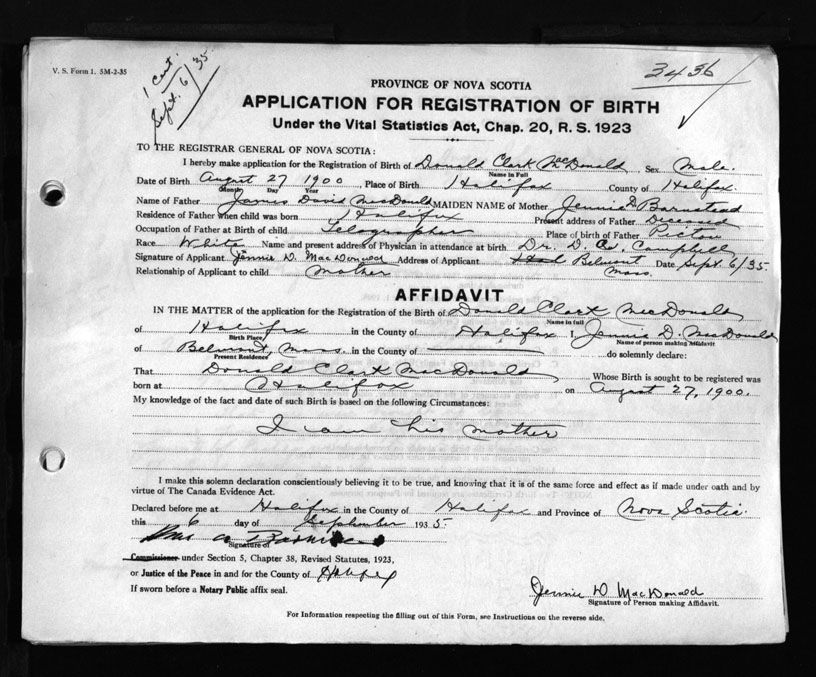 V. S. Form 1. 5M-2-35
1 Cert.
Sept. 6/35
3436
PROVINCE OF NOVA SCOTIA
APPLICATION FOR REGISTRATION OF BIRTH
Under the Vital Statistics Act, Chap. 20, R. S. 1923
TO THE REGISTRAR GENERAL OF NOVA SCOTIA:
I hereby make application for the Registration of Birth of Donald Clark MacDonald, Sex Male.
Name in Full
Date of Birth August 27 1900, Place of Birth Halifax County of Halifax.
Month Day Year
Name of Father James David MacDonald MAIDEN NAME of Mother Jennie D Barnstead
Residence of Father when child was born Halifax Present address of Father Deceased
Occupation of Father at Birth of child Telegrapher Place of birth of Father Pictou
Race White Name and present address of Physician in attendance at birth Dr. D. A. Campbell
Signature of Applicant Jennie D. MacDonald Address of Applicant Belmont Date Sept. 6/35.
Relationship of Applicant to child mother Mass.
AFFIDAVIT
IN THE MATTER of the application for the Registration of the Birth of Donald Clark MacDonald
Name in full
of Halifax in the County of Halifax I Jennie D. MacDonald
Birth Place Name of person making Affidavit
of Belmont, Mass. in the County of do solemnly declare:
Present Residence
That Donald Clark MacDonald Whose Birth is sought to be registered was
born at Halifax on August 27, 1900.
My knowledge of the fact and date of such Birth is based on the following Circumstances:
I am his mother
I make this solemn declaration conscientiously believing it to be true, and knowing that it is of the same force and effect as if made under oath and by
virtue of The Canada Evidence Act.
Declared before me at Halifax in the County of Halifax and Province of Nova Scotia.
this 6 day of September 1935.
Signature of
Commissioner under Section 5, Chapter 38, Revised Statutes, 1923,
or Justice of the Peace in and for the County of Halifax
If sworn before a Notary Public affix seal.
Jennie D MacDonald
Signature of Person making Affidavit.
For Information respecting the filling out of this Form, see Instructions on the reverse side.